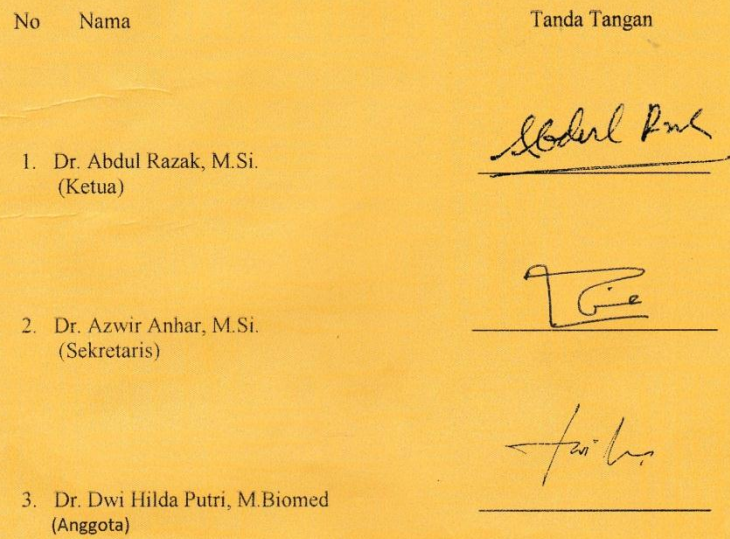 No Nama Tanda Tangan
1. Dr. Abdul Razak, M.Si.
(Ketua)
2. Dr. Azwir Anhar, M.Si.
(Sekretaris)
3. Dr. Dwi Hilda Putri, M.Biomed
(Anggota)